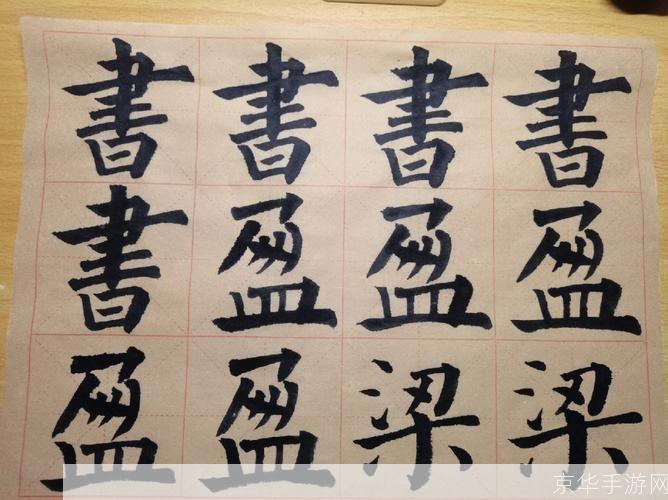 書書書書
書盈盈盈
盈盈梁梁
京华手游网